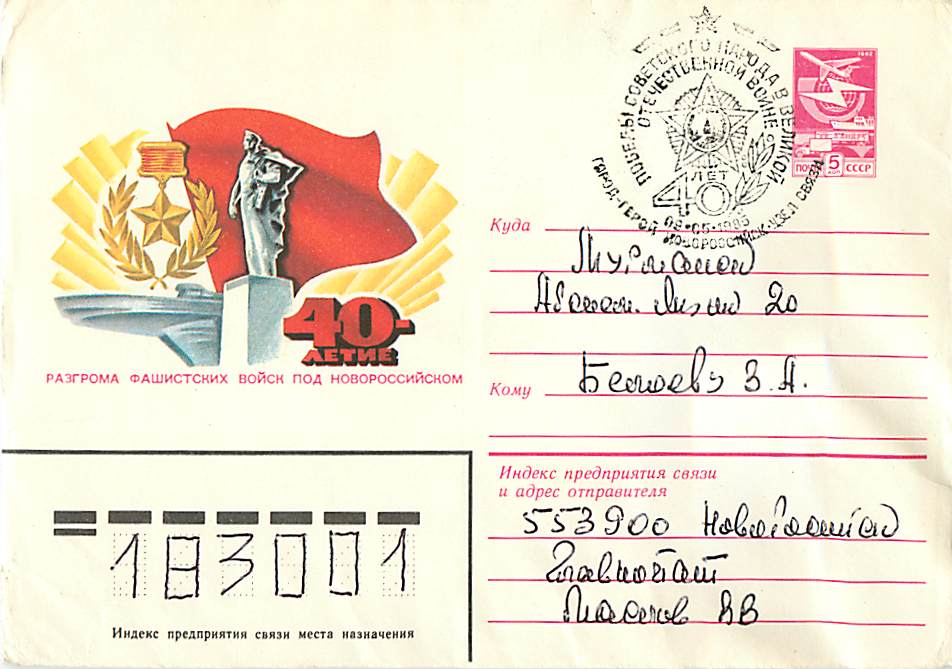 40-
ЛЕТИЕ
РАЗГРОМА ФАШИСТСКИХ ВОЙСК ПОД НОВОРОССИЙСКОМ
ПОБЕДЫ СОВЕТСКОГО НАРОДА В ВЕЛИКОЙ
ОТЕЧЕСТВЕННОЙ ВОЙНЕ
ЛЕТ
40
09•05•1985
ГОРОД-ГЕРОЙ НОВОРОССИЙСК-УЗЕЛ СВЯЗИ
1982
5 КОП СССР
Куда
Мурманск
20
Кому
З. А.
Индекс предприятия связи
и адрес отправителя
553900 Новороссийск
Главпочтамт
ВВ
183001
Индекс предприятия связи места назначения